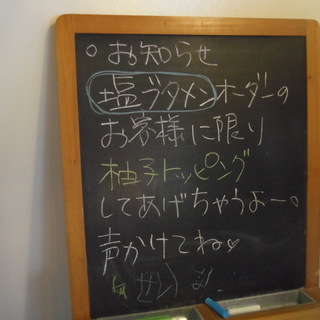 ○お知らせ
塩ラメンオーダーの
お客様に限り
柚子トッピング
してあげちゃうよー。
声かけてね♡